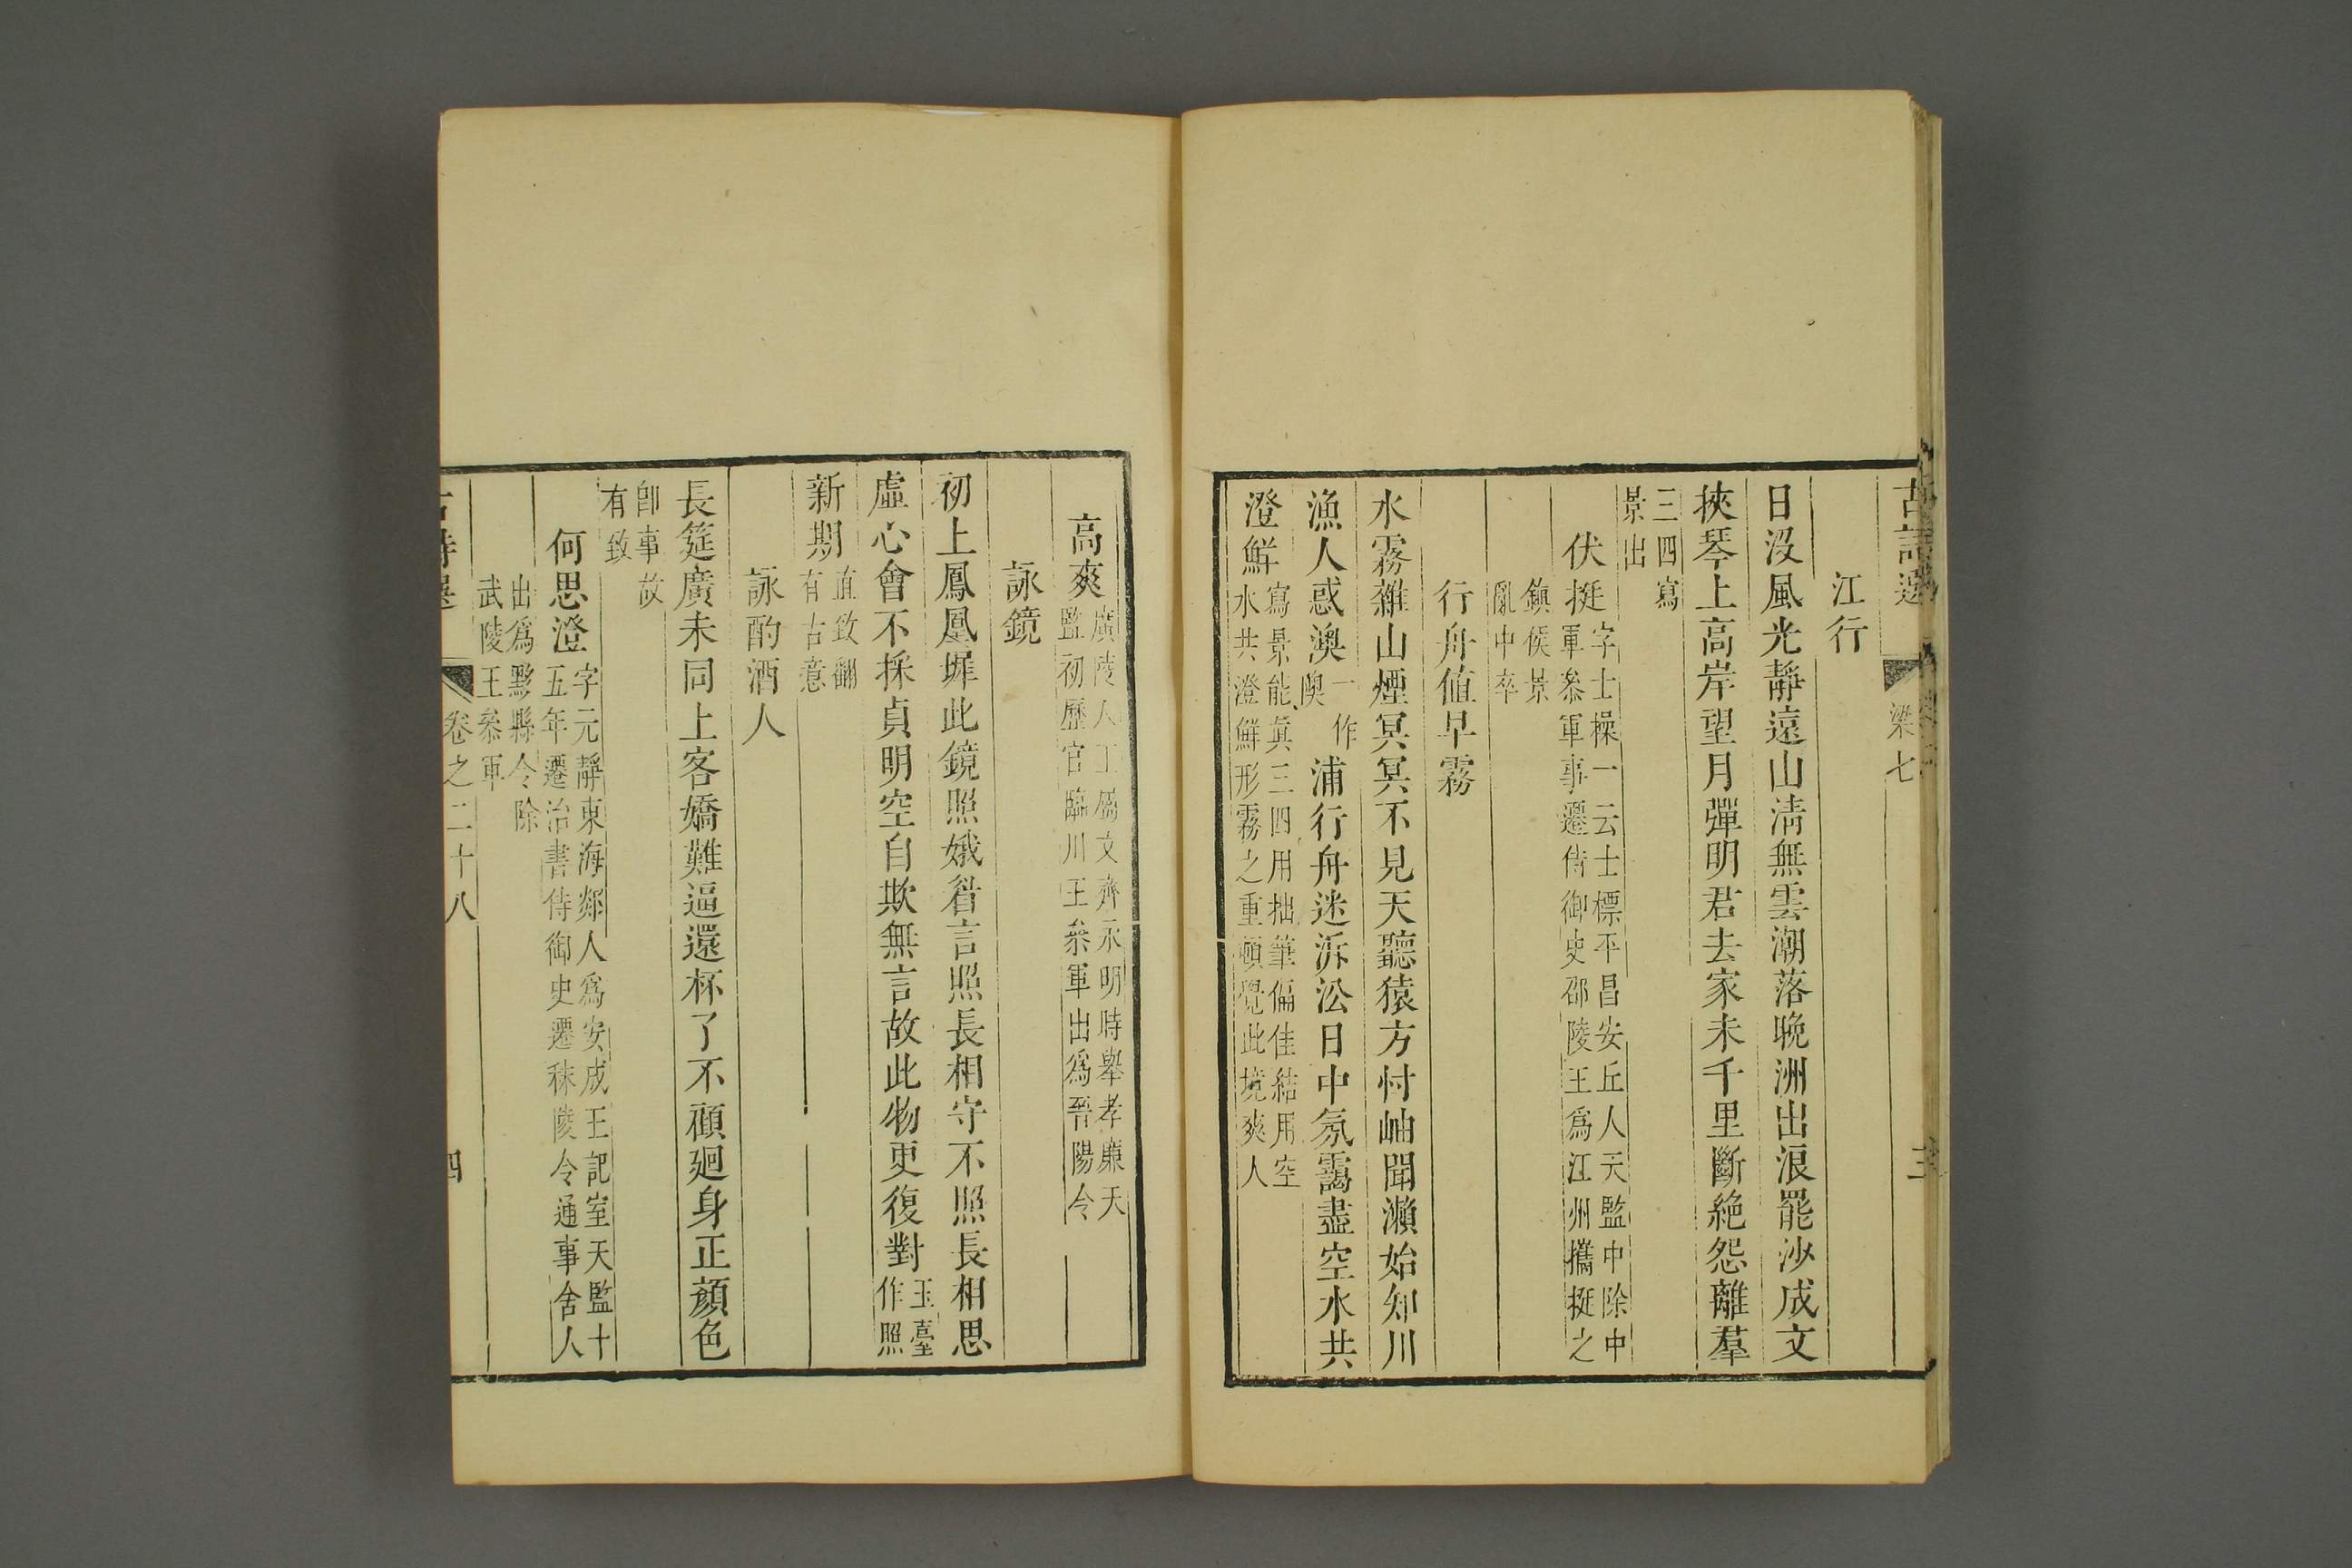 古詩選
梁七
三
江行
日沒風光靜遠山淸無雲潮落晚洲出浪罷沙成文
挾琴上高岸望月彈明君去家未千里斷絕怨離羣
三四寫
景出
伏挺
字士操一云士標平昌安丘人天監中除中
軍叅軍事遷侍御史邵陵王爲江州攜挺之
鎮候景
亂中卒
行舟值早霧
水霧雜山煙冥冥不見天聽猿方忖岫聞瀨始知川
漁人惑澳
一作
隩
浦行舟迷泝㳂日中氛靄盡空水共
澄鮮
寫景能眞三四用拙筆偏佳結用空
水共澄鮮形霧之重頓覺此境爽人
高爽
廣陵人工屬文齊永明時舉孝廉天
監初歷官臨川王叅軍出爲晉陽令
詠鏡
初上鳳凰墀此鏡照娥眉言照長相守不照長相思
虛心會不採貞明空自欺無言故此物更復對
玉臺
作照
新期
直致翻
有古意
詠酌酒人
長筵廣未同上客嬌難逼還杯了不顧廻身正顏色
卽事故
有致
何思澄
字元靜東海郯人爲安成王記室天監十
五年遷治書侍御史遷秣陵令通事舍人
出爲黟縣令除
武陵王叅軍
古詩選
卷之二十八
四